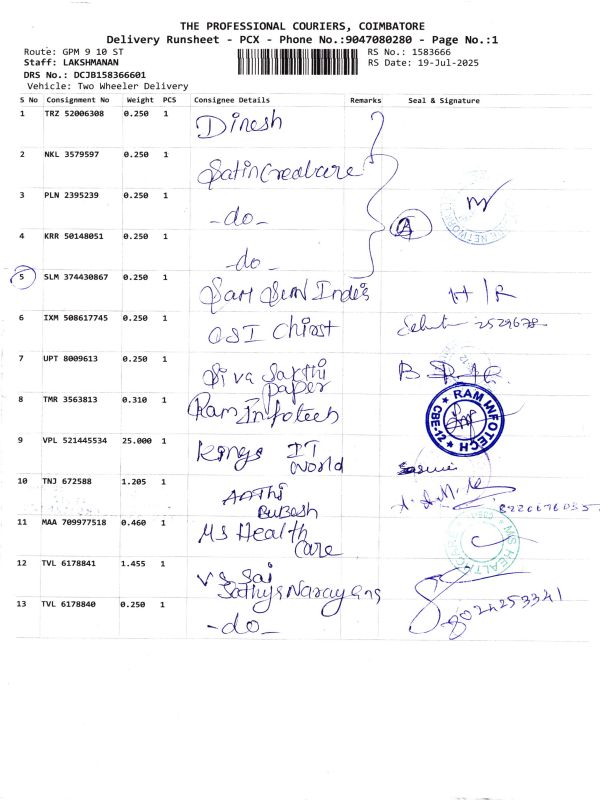 THE PROFESSIONAL COURIERS, COIMBATORE
Delivery Runsheet - PCX - Phone No.:9047080280 - Page No.:1
Route: GPM 9 10 ST RS No.: 1583666
Staff: LAKSHMANAN RS Date: 19-Jul-2025
DRS No.: DCJB158366601
Vehicle: Two Wheeler Delivery
S No Consignment No Weight PCS Consignee Details Remarks Seal & Signature
1 TRZ 52006308 0.250 1 Dinesh
2 NKL 3579597 0.250 1 Satin Creditcare
3 PLN 2395239 0.250 1 -do-
A
4 KRR 50148051 0.250 1 -do-
5 SLM 374430867 0.250 1 H/R
6 IXM 508617745 0.250 1 CSI Christ 2529678
7 UPT 8009613 0.250 1 Siva Sakthi
paper
8 TMR 3563813 0.310 1 Ram Infotech
RAM INFOTECH
CBE-12
9 VPL 521445534 25.000 1 Kings IT
World
10 TNJ 672588 1.205 1 Aathi
11 MAA 709977518 0.460 1 MS Health
Care
MS HEALTH CARE
12 TVL 6178841 1.455 1 VS Sai
Sathya Narayana
13 TVL 6178840 0.250 1 -do- 8024253341